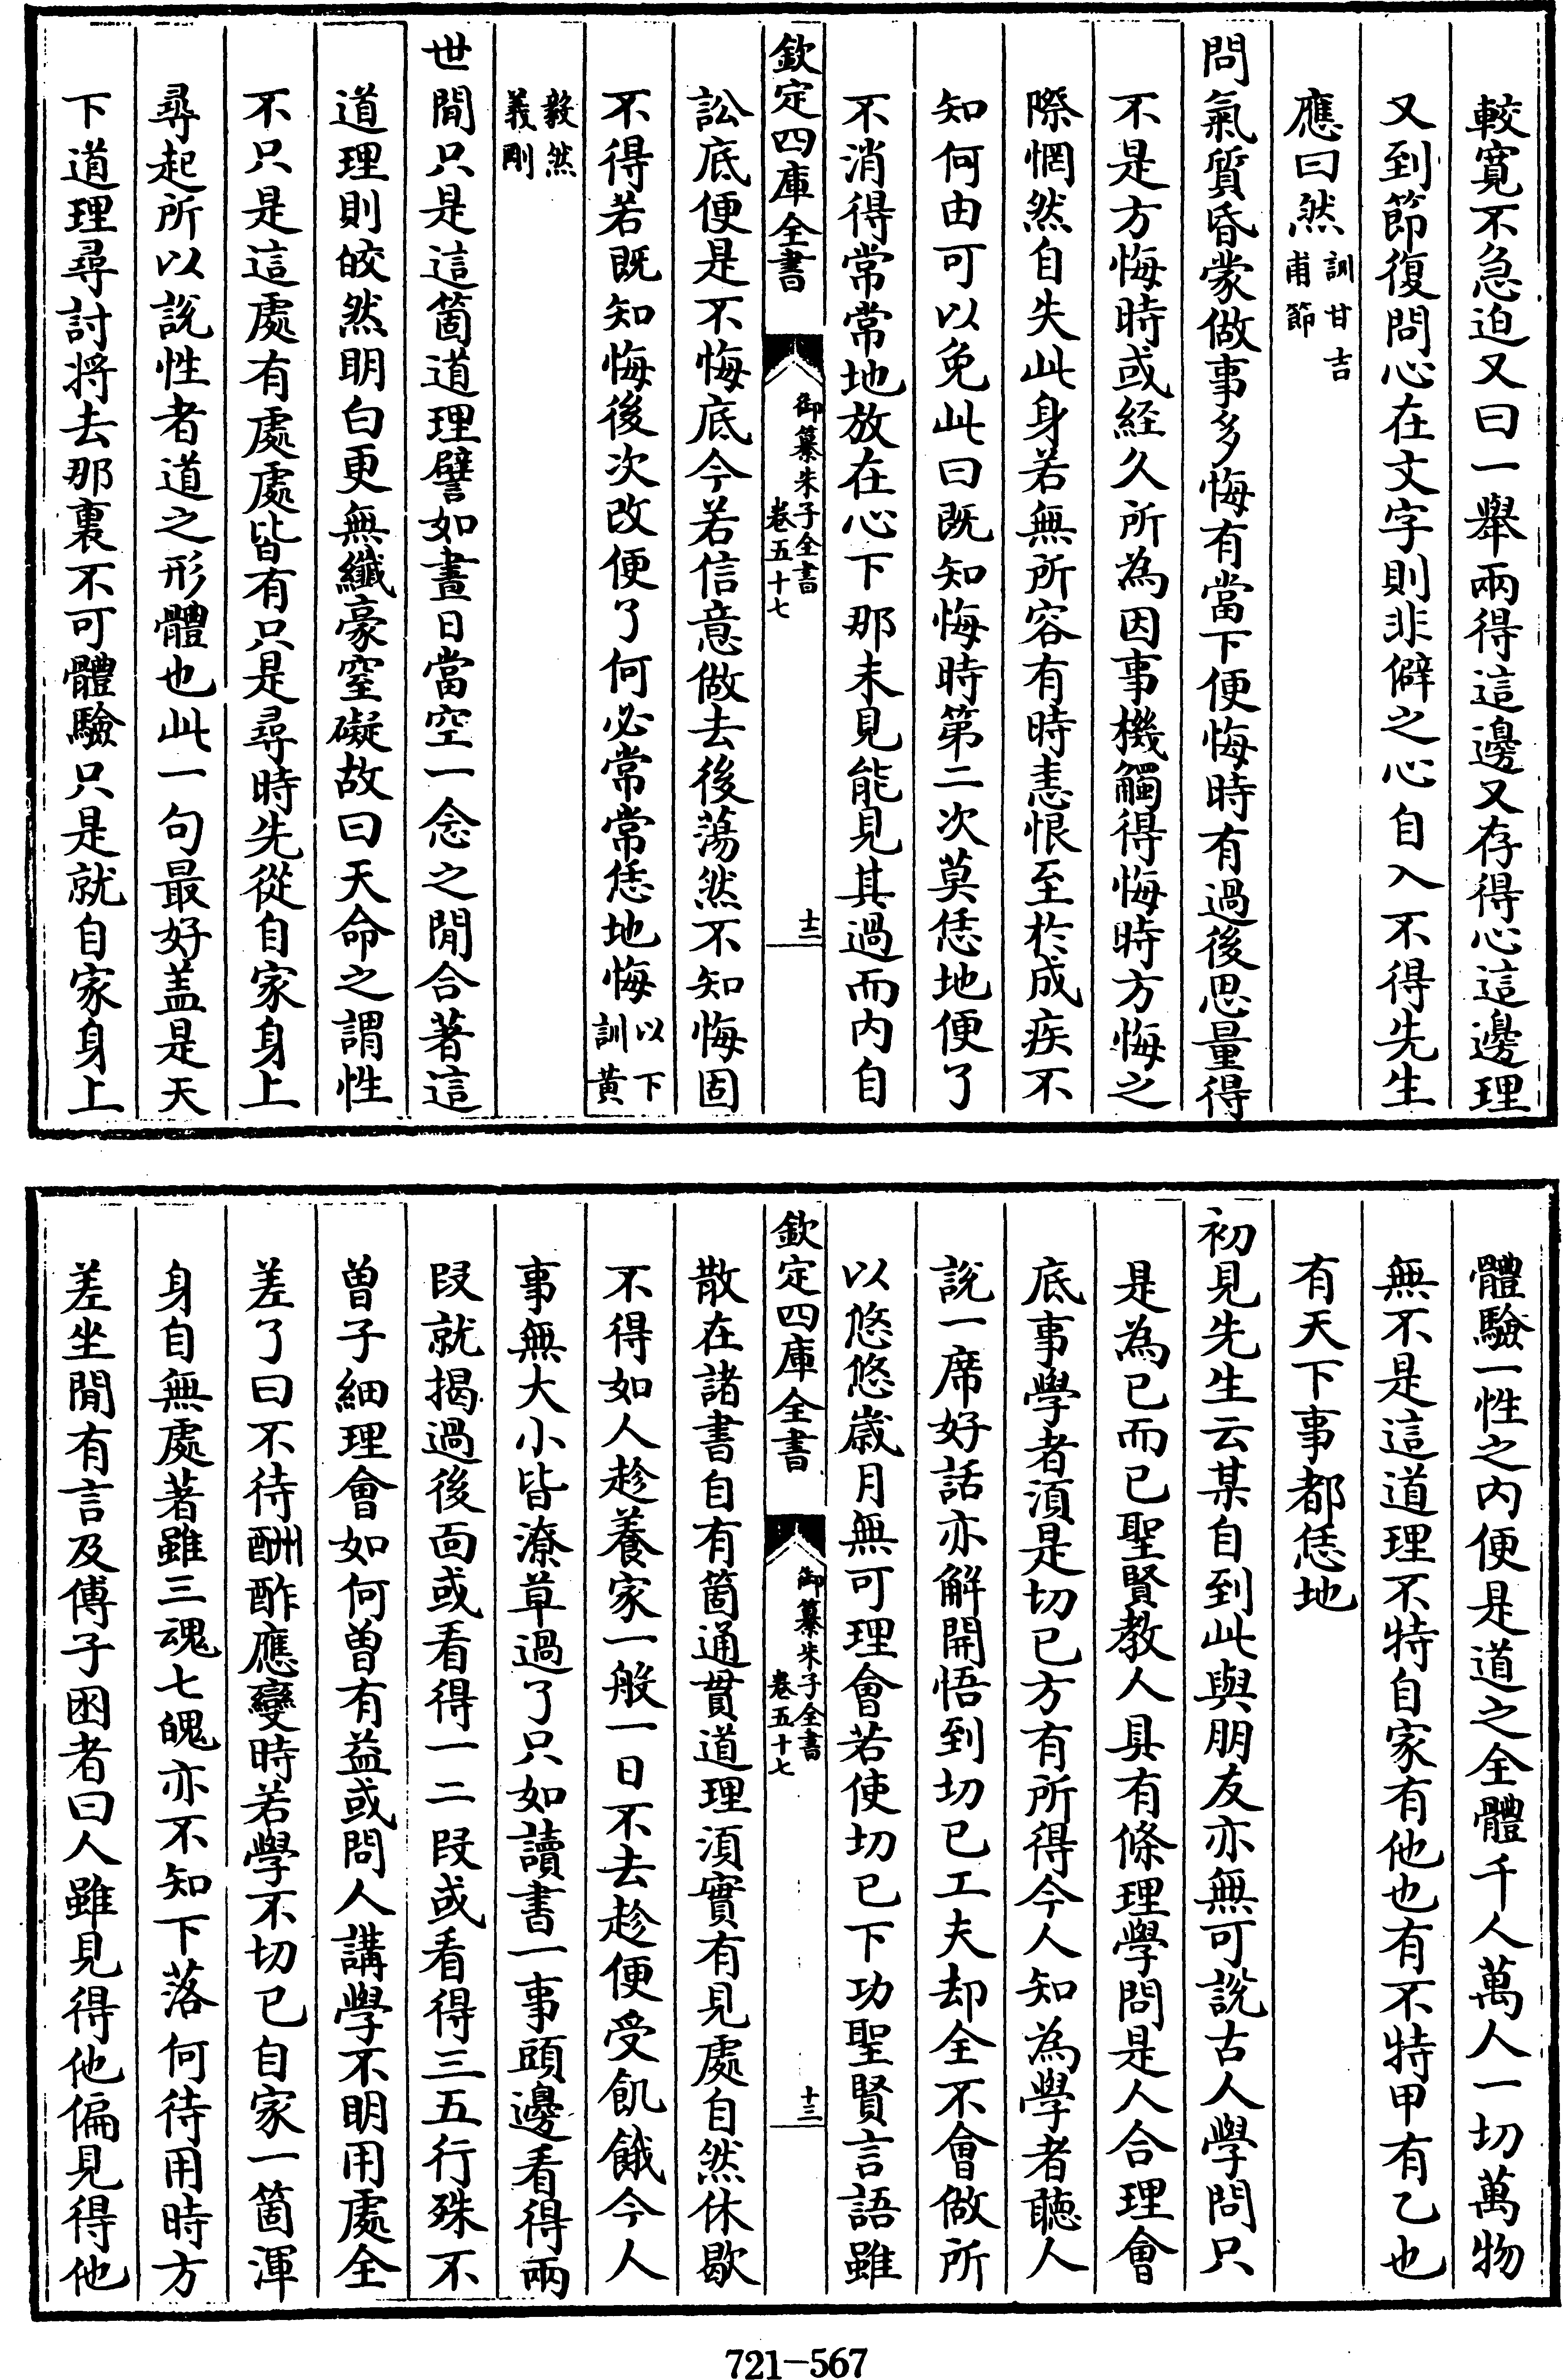 較寛不急迫又曰一舉兩得這邊又存得心這邊理
又到節復問心在文字則非僻之心自入不得先生
應曰然訓甘吉甫節
問氣質昏蒙做事多悔有當下便悔時有過後思量得
不是方悔時或經久所為因事機觸得悔時方悔之
際惘然自失此身若無所容有時恚恨至於成疾不
知何由可以免此曰既知悔時第二次莫恁地便了
不消得常常地放在心下那未見能見其過而内自
欽定四庫全書
御纂朱子全書
卷五十七
十二
訟底便是不悔底今若信意做去後蕩然不知悔固
不得若既知悔後次改便了何必常常恁地悔以下訓黄
毅然義剛
世間只是這箇道理譬如晝日當空一念之閒合著這
道理則皎然明白更無纖豪窒礙故曰天命之謂性
不只是這處有處處皆有只是尋時先從自家身上
尋起所以說性者道之形體也此一句最好盖是天
下道理尋討将去那裏不可體驗只是就自家身上
體驗一性之内便是道之全體千人萬人一切萬物
無不是這道理不特自家有他也有不特甲有乙也
有天下事都恁地
初見先生云某自到此與朋友亦無可說古人學問只
是為已而已聖賢教人具有條理學問是人合理會
底事學者須是切已方有所得今人知為學者聽人
說一席好話亦解開悟到切已工夫却全不會做所
以悠悠歲月無可理會若使切已下功聖賢言語雖
欽定四庫全書
御纂朱子全書
卷五十七
十三
散在諸書自有箇通貫道理須實有見處自然休歇
不得如人趁養家一般一日不去趁便受飢餓今人
事無大小皆潦草過了只如讀書一事頭邊看得兩
段就揭過後面或看得一二段或看得三五行殊不
曽子細理會如何曽有益或問人講學不明用處全
差了曰不待酬酢應變時若學不切已自家一箇渾
身自無處著雖三魂七魄亦不知下落何待用時方
差坐閒有言及傅子囦者曰人雖見得他偏見得他
721—567